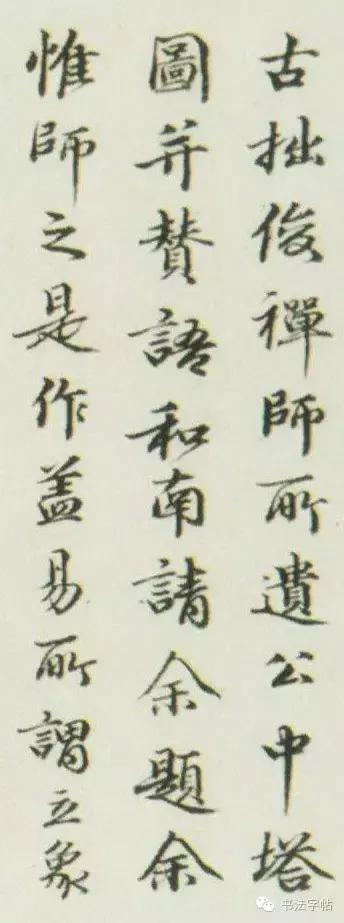 古拙俊禪師所遺公中塔
圖并贊語和南請余題余
惟師之是作盖易所謂立象
书法字帖